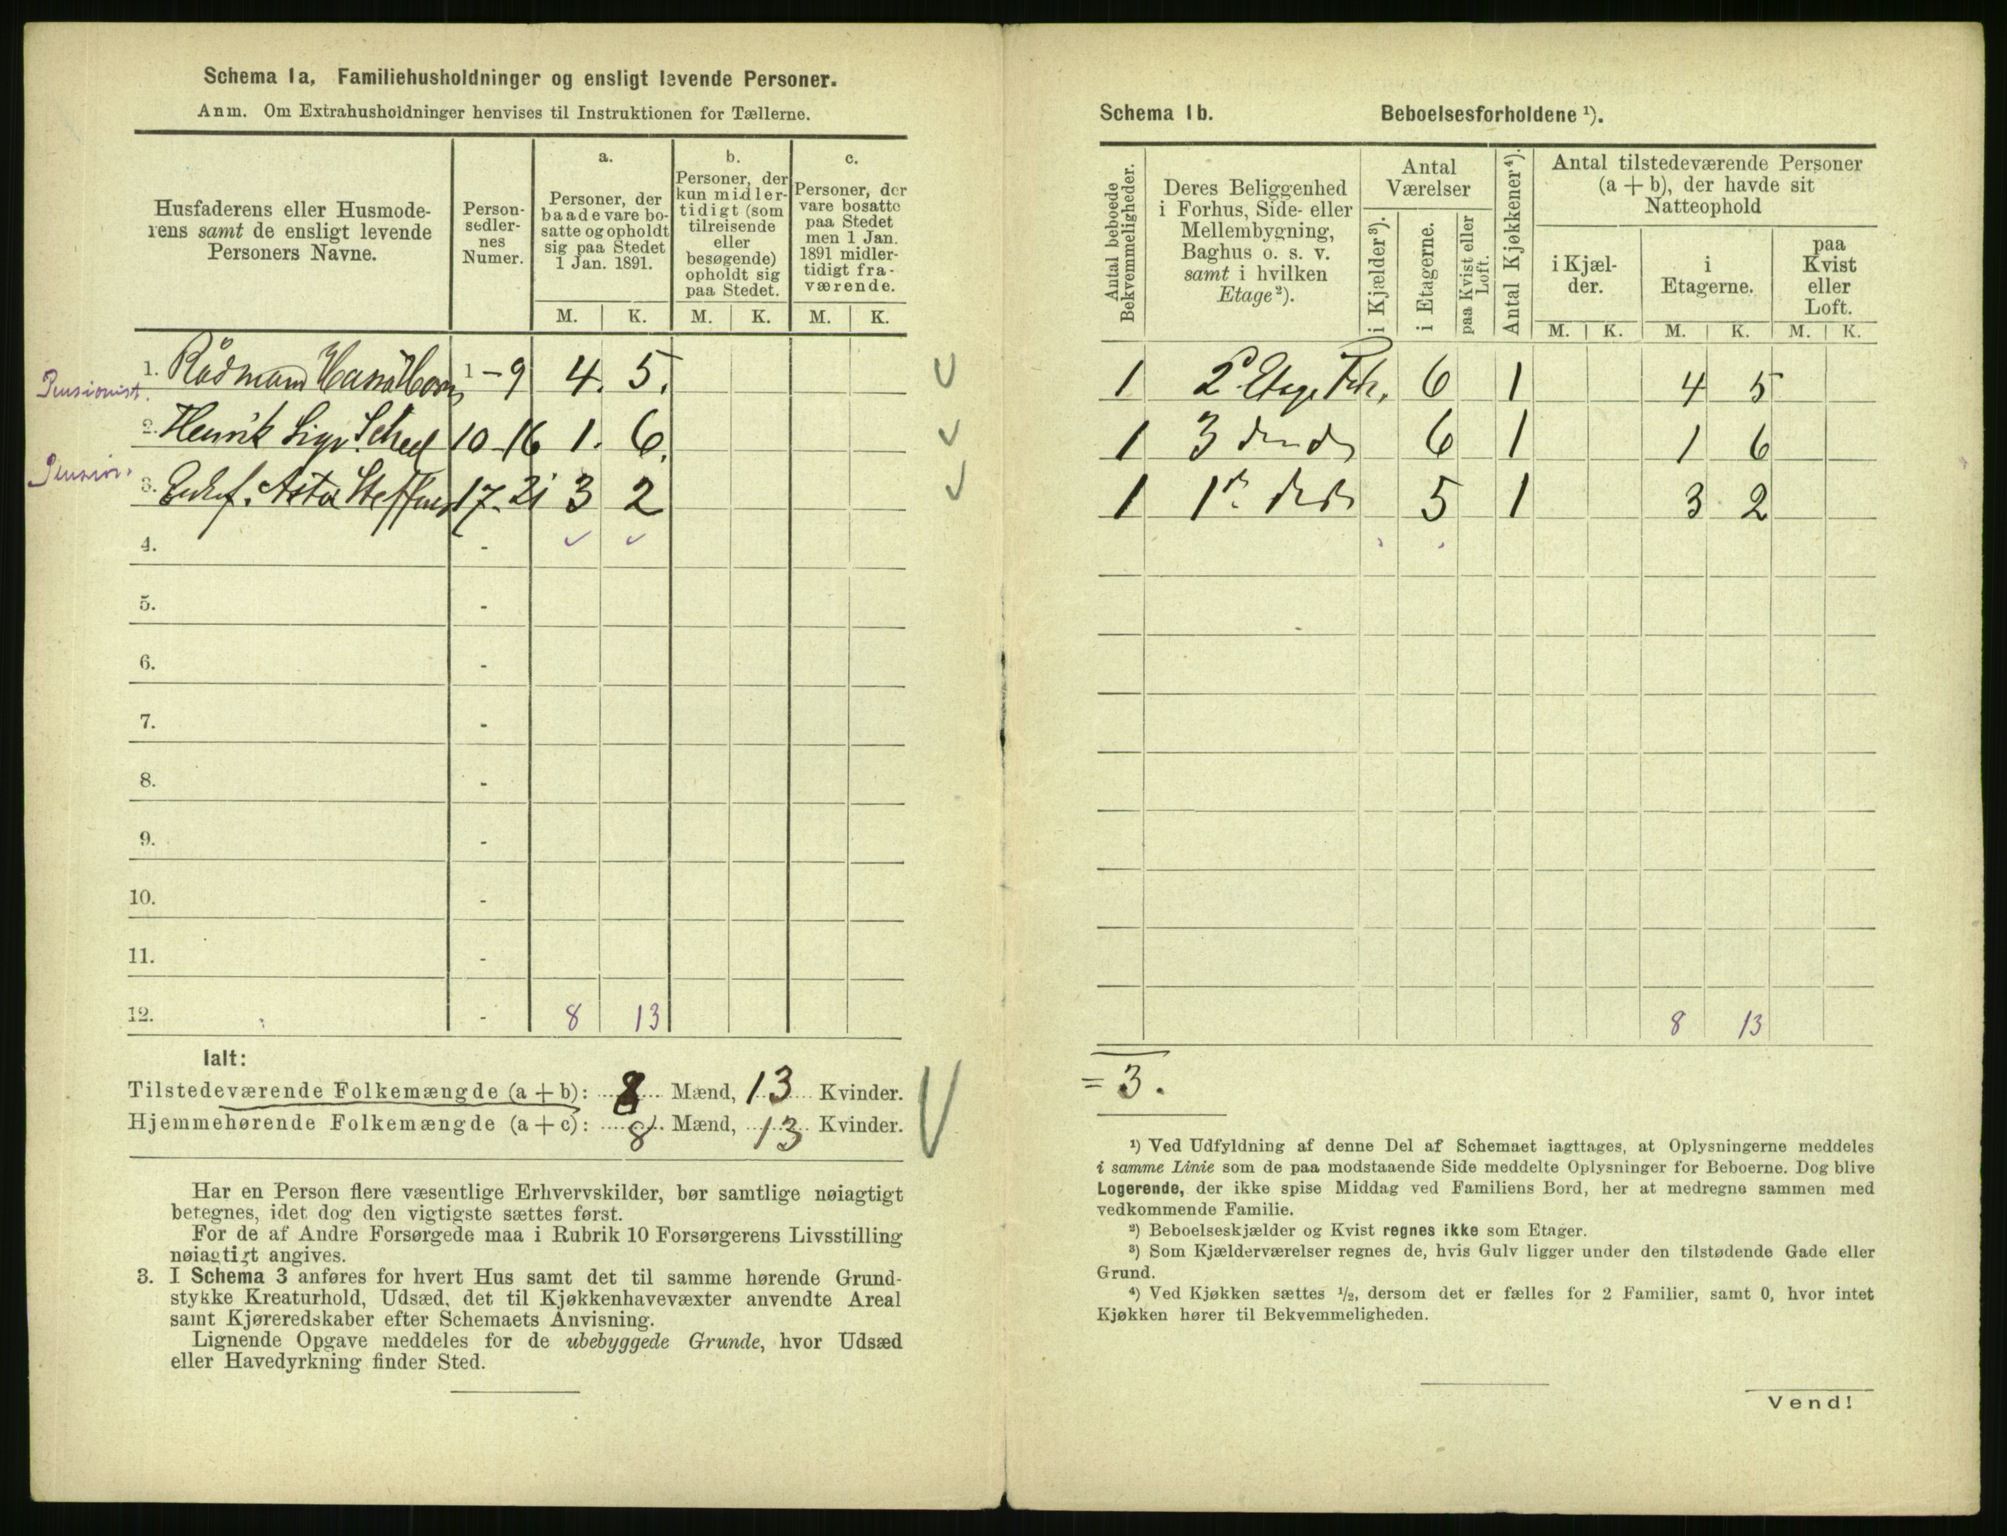 Schema 1a, Familiehusholdninger og ensligt levende Personer.
Anm. Om Extrahusholdninger henvises til Instruktionen for Tællerne.
Husfaderens eller Husmode-
rens samt de ensligt levende
Personers Navne.
Person-
sedler-
nes
Numer.
a.
Personer, der
baade vare bo-
satte og opholdt
sig paa Stedet
1 Jan. 1891.
b.
Personer, der
kun midler-
tidigt (som
tilreisende
eller
besøgende)
opholdt sig
paa Stedet.
c.
Personer, der
vare bosatte
paa Stedet
men 1 Jan.
1891 midler-
tidigt fra-
værende.
M. K. M. K. M. K.
Pensionist.
1. Rådmand 1 - 9 4. 5.
2. Henrik Sigv. 10 - 16 1. 6.
Pension.
3. Enkef. Asta Steffens 17 - 21 3 2
4. -
5. -
6. -
7. -
8. -
9. -
10. -
11. -
12. - 8 13
Ialt:
Tilstedeværende Folkemængde (a + b): 8 Mænd, 13 Kvinder.
Hjemmehørende Folkemængde (a + c): 8 Mænd, 13 Kvinder.
Har en Person flere væsentlige Erhvervskilder, bør samtlige nøiagtigt
betegnes, idet dog den vigtigste sættes først.
For de af Andre Forsørgede maa i Rubrik 10 Forsørgerens Livsstilling
nøiagtigt angives.
3. I Schema 3 anføres for hvert Hus samt det til samme hørende Grund-
stykke Kreaturhold, Udsæd, det til Kjøkkenhavevæxter anvendte Areal
samt Kjøreredskaber efter Schemaets Anvisning.
Lignende Opgave meddeles for de ubebyggede Grunde, hvor Udsæd
eller Havedyrkning finder Sted.
Schema 1b. Beboelsesforholdene ¹).
Antal beboede
Bekvemmeligheder.
Deres Beliggenhed
i Forhus, Side- eller
Mellembygning,
Baghus o. s. v.
samt i hvilken
Etage²).
Antal
Værelser
i Kjælder³).
i Etagerne.
paa Kvist eller
Loft.
Antal Kjøkkener⁴).
Antal tilstedeværende Personer
(a + b), der havde sit
Natteophold
i Kjæl-
der.
i
Etagerne.
paa
Kvist
eller
Loft.
M. K. M. K. M. K.
1 2 Etage Fh. 6 1 4 5
1 3 6 1 1 6
1 1 5 1 3 2
8 13
= 3.
¹) Ved Udfyldning af denne Del af Schemaet iagttages, at Oplysningerne meddeles
i samme Linie som de paa modstaaende Side meddelte Oplysninger for Beboerne. Dog blive
Logerende, der ikke spise Middag ved Familiens Bord, her at medregne sammen med
vedkommende Familie.
²) Beboelseskjælder og Kvist regnes ikke som Etager.
³) Som Kjælderværelser regnes de, hvis Gulv ligger under den tilstødende Gade eller
Grund.
⁴) Ved Kjøkken sættes ½, dersom det er fælles for 2 Familier, samt 0, hvor intet
Kjøkken hører til Bekvemmeligheden.
Vend!